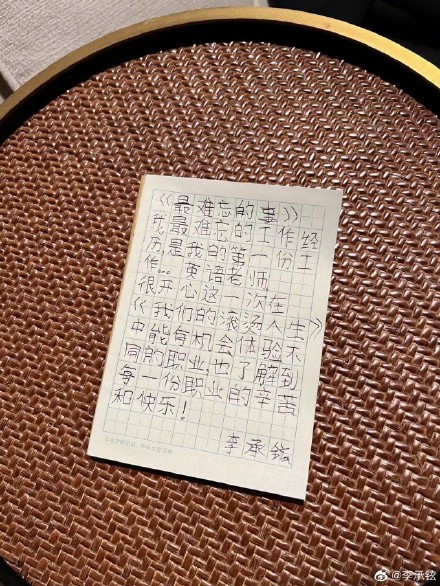 《最难忘的事》
我最难忘的工作经
历是我的第一份工
作... 英语老师
很开心这一次在
《我们的滚烫人生》
中能有机会体验不
同的职业,也了解到
每一份职业的辛苦
和快乐!
李承铉
@李承铉